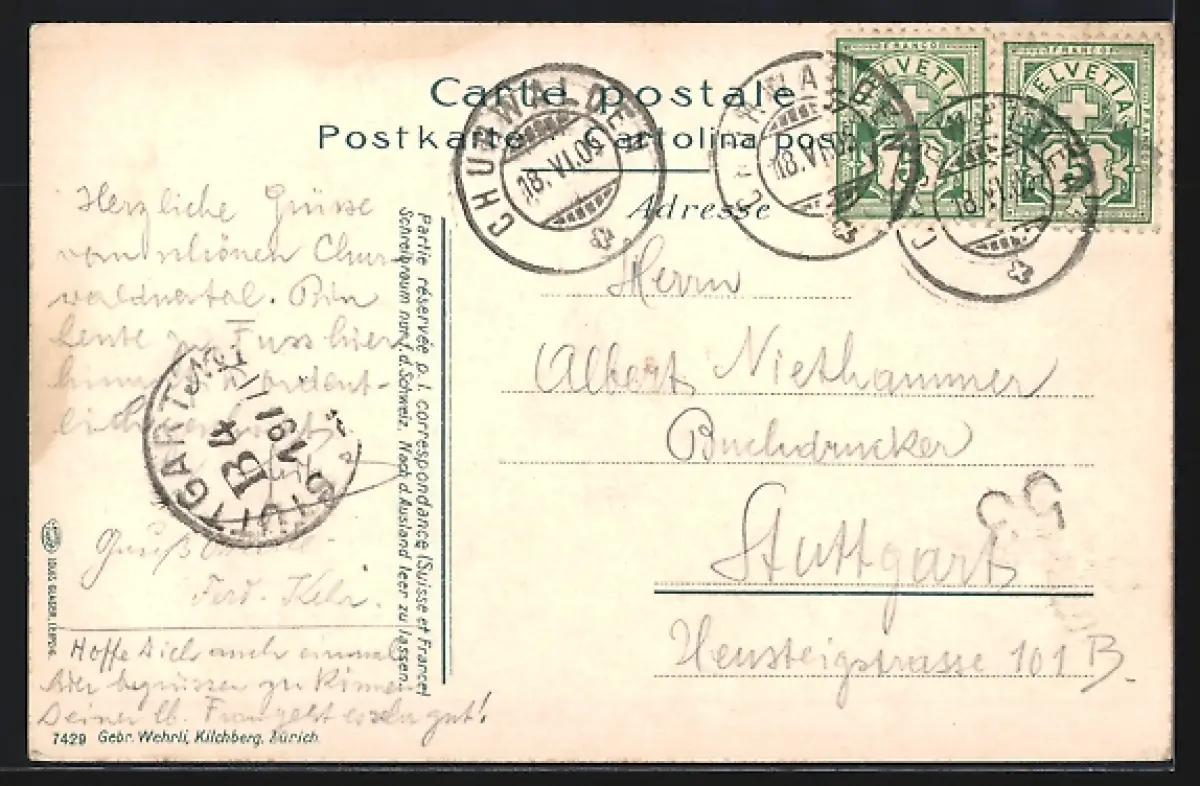 Carte postale
Postkarte Cartolina post
Adresse
CHURWALDEN
18.VI.05
CHURWALDEN
18.VI.05
CHURWALDEN
18.VI.05
FRANCO
HELVETIA
5
FRANCO
HELVETIA
5
Herzliche Grüsse
vom schönen Chur-
waldnertal. Bin
heute zu Fuss hier
ordent-
STUTTGART
B 4
Gruß
Ferd. Kehr.
Hoffe Dich auch einmal
hier begrüssen zu können
Deiner lb. Frau geht es sehr gut!
Partie réservée p. l. correspondance (Suisse et France)
Schreibraum nur f. d. Schweiz. Nach d. Ausland leer zu lassen.
Herrn
Albert Niethammer
Buchdrucker
Stuttgart
Heusteigstrasse 101 B.
LOUIS GLASER, LEIPZIG.
7429 Gebr. Wehrli, Kilchberg, Zürich